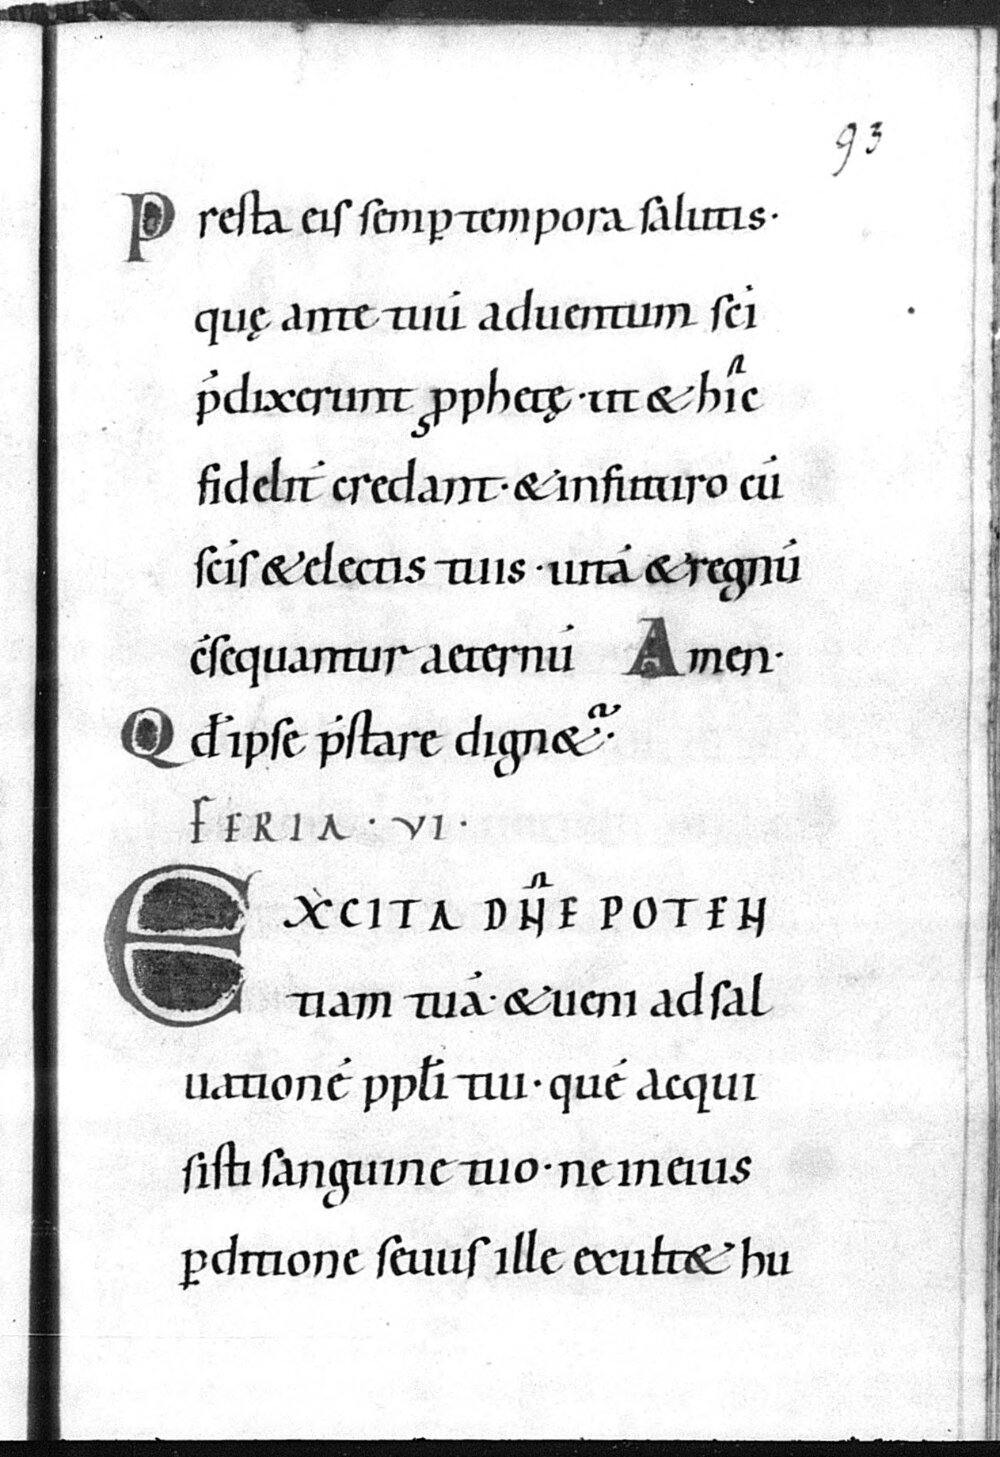 93
Presta eis semꝑ tempora salutis·
quę ante tuū aduentum sc̄i
p̄dixerunt ꝓphetę· ut & hi̅c
fidelit̄ credant· & in futuro cū
sc̄is & electis tuis· uitā & regnū
c̄sequantur aeternū Amen·
Qđ ipse p̄stare dign&ur·
FERIA · VI ·
EXCITA DN̄E POTEN
tiam tuā· & ueni ad sal
uationē ppłi tui· quē acqui
sisti sanguine tuo· ne in eius
ꝑditione seuus ille exult& hu